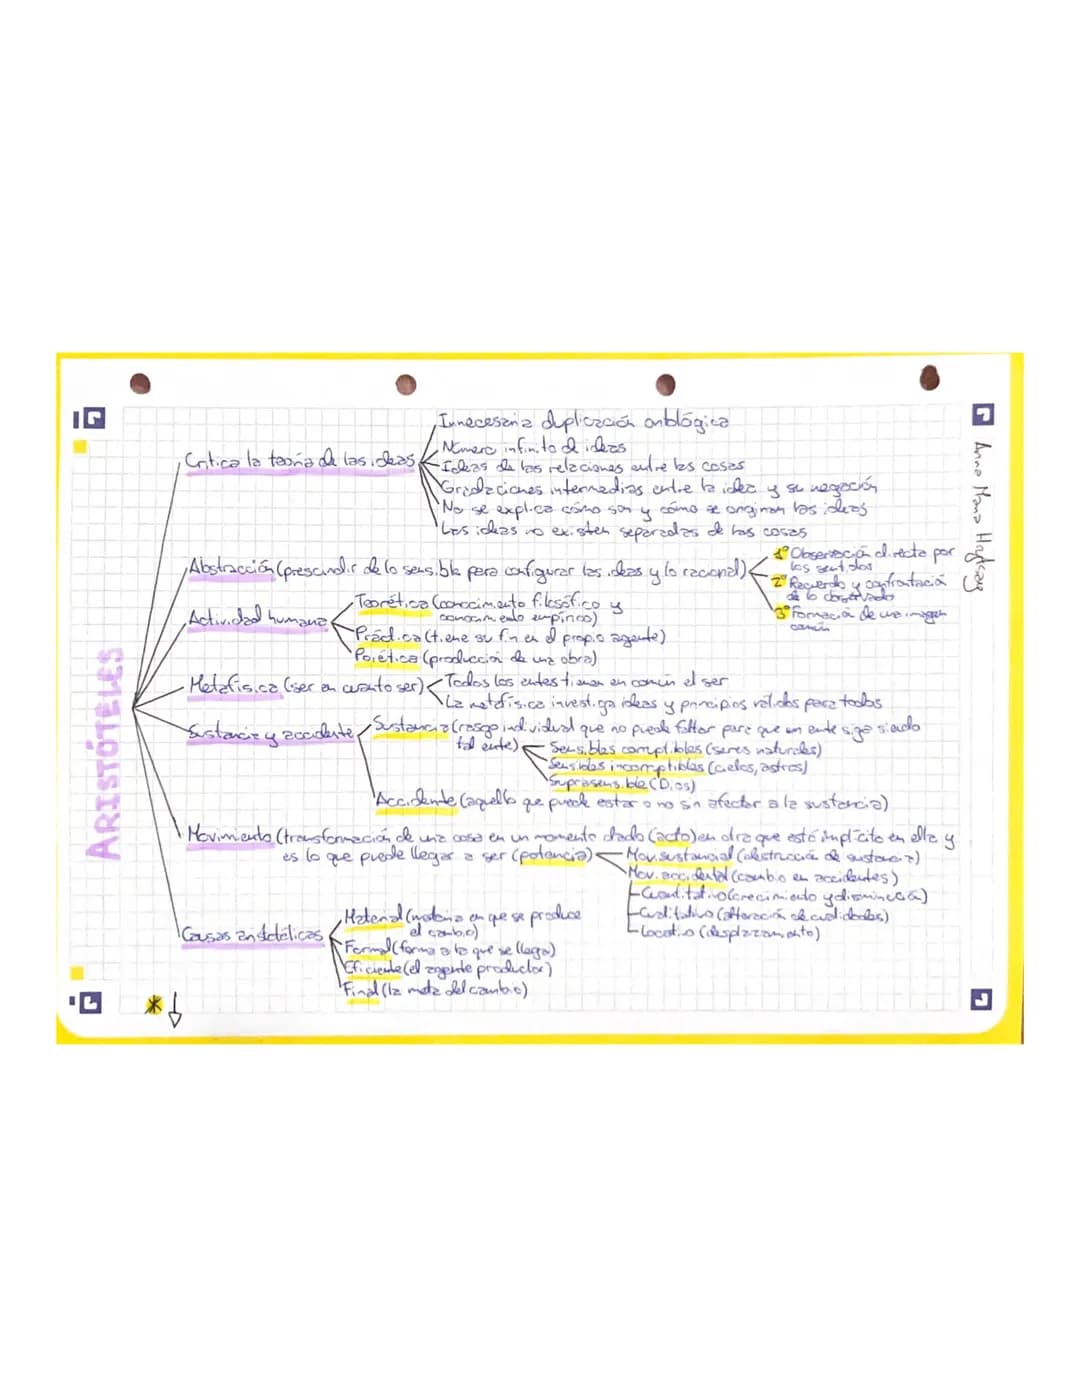 ARISTÓTELES
Critica la teoría de las ideas
Innecesaria duplicación ontológica
Número infinito de ideas
Ideas de las relaciones entre las cosas
Gradaciones intermedias entre la idea y su negación
No se explica cómo son y cómo se originan las ideas
Las ideas no existen separadas de las cosas
Abstracción (prescindir de lo sensible para configurar las ideas y lo racional)
1º Observación directa por
los sentidos
2º Recuerdo y confrontación
de lo observado
3º Formación de una imagen
común
Actividad humana
Teorética (conocimiento filosófico y
conocimiento empírico)
Práctica (tiene su fin en el propio agente)
Poiética (producción de una obra)
Metafísica (ser en cuanto ser)
Todos los entes tienen en común el ser
La metafísica investiga ideas y principios válidos para todos
Sustancia y accidente
Sustancia (rasgo individual que no puede faltar para que un ente siga siendo
tal ente)
Sensibles corruptibles (seres naturales)
Sensibles incorruptibles (cielos, astros)
Suprasensible (Dios)
Accidente (aquello que puede estar o no sin afectar a la sustancia)
Movimiento (transformación de una cosa en un momento dado (acto) en otra que está implícito en ella y
es lo que puede llegar a ser (potencia)
Mov. sustancial (destrucción de sustancia)
Mov. accidental (cambio en accidentes)
Cuantitativo (crecimiento y disminución)
Cualitativo (alteración de cualidades)
Locativo (desplazamiento)
Causas aristotélicas
Material (materia en que se produce
el cambio)
Formal (forma a la que se llega)
Eficiente (el agente productor)
Final (la meta del cambio)
Anna Maria